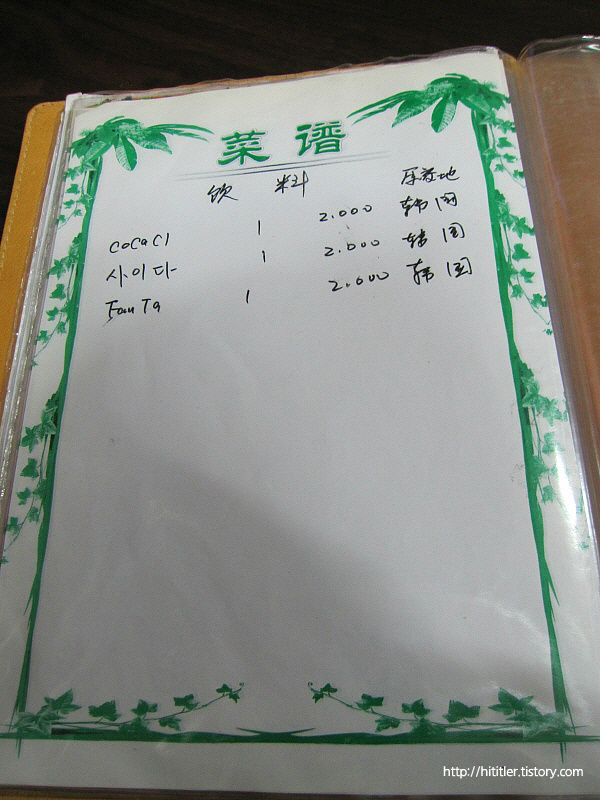 菜谱
饮 料 原产地
CoCaCl 1 2.000 韩国
사이다 1 2.000 韩国
FanTa 1 2.000 韩国
http://hititler.tistory.com